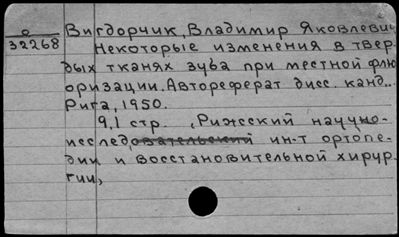 0
32268
Вигдорчик, Владимир Яковлевич
Некоторые изменения в твер-
дых тканях зуба при местной флю-
оризации. Автореферат дисс. канд..
Рига, 1950.
9,1 стр. , Рижский научно-
исследовательский ин-т ортопе-
дии и восстановительной хирур-
гии,